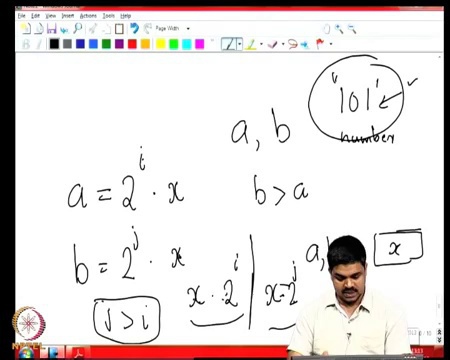 File Edit View Insert Actions Tools Help
Page Width
"101"
number
a, b
a = 2^i · x
b > a
b = 2^j · x
j > i
x · 2^i
x = 2^j
a, b
x